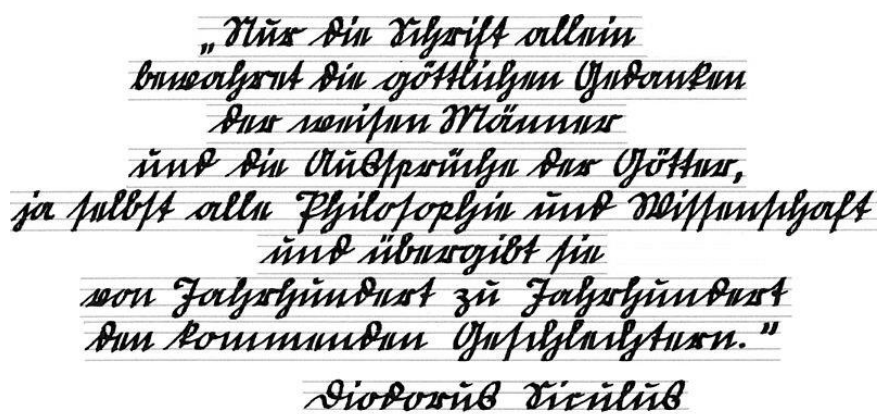 „Nur die Schrift allein
bewahret die göttlichen Gedanken
der weisen Männer
und die Aussprüche der Götter,
ja selbst alle Philosophie und Wissenschaft
und übergibt sie
von Jahrhundert zu Jahrhundert
den kommenden Geschlechtern.”
Diodorus Siculus